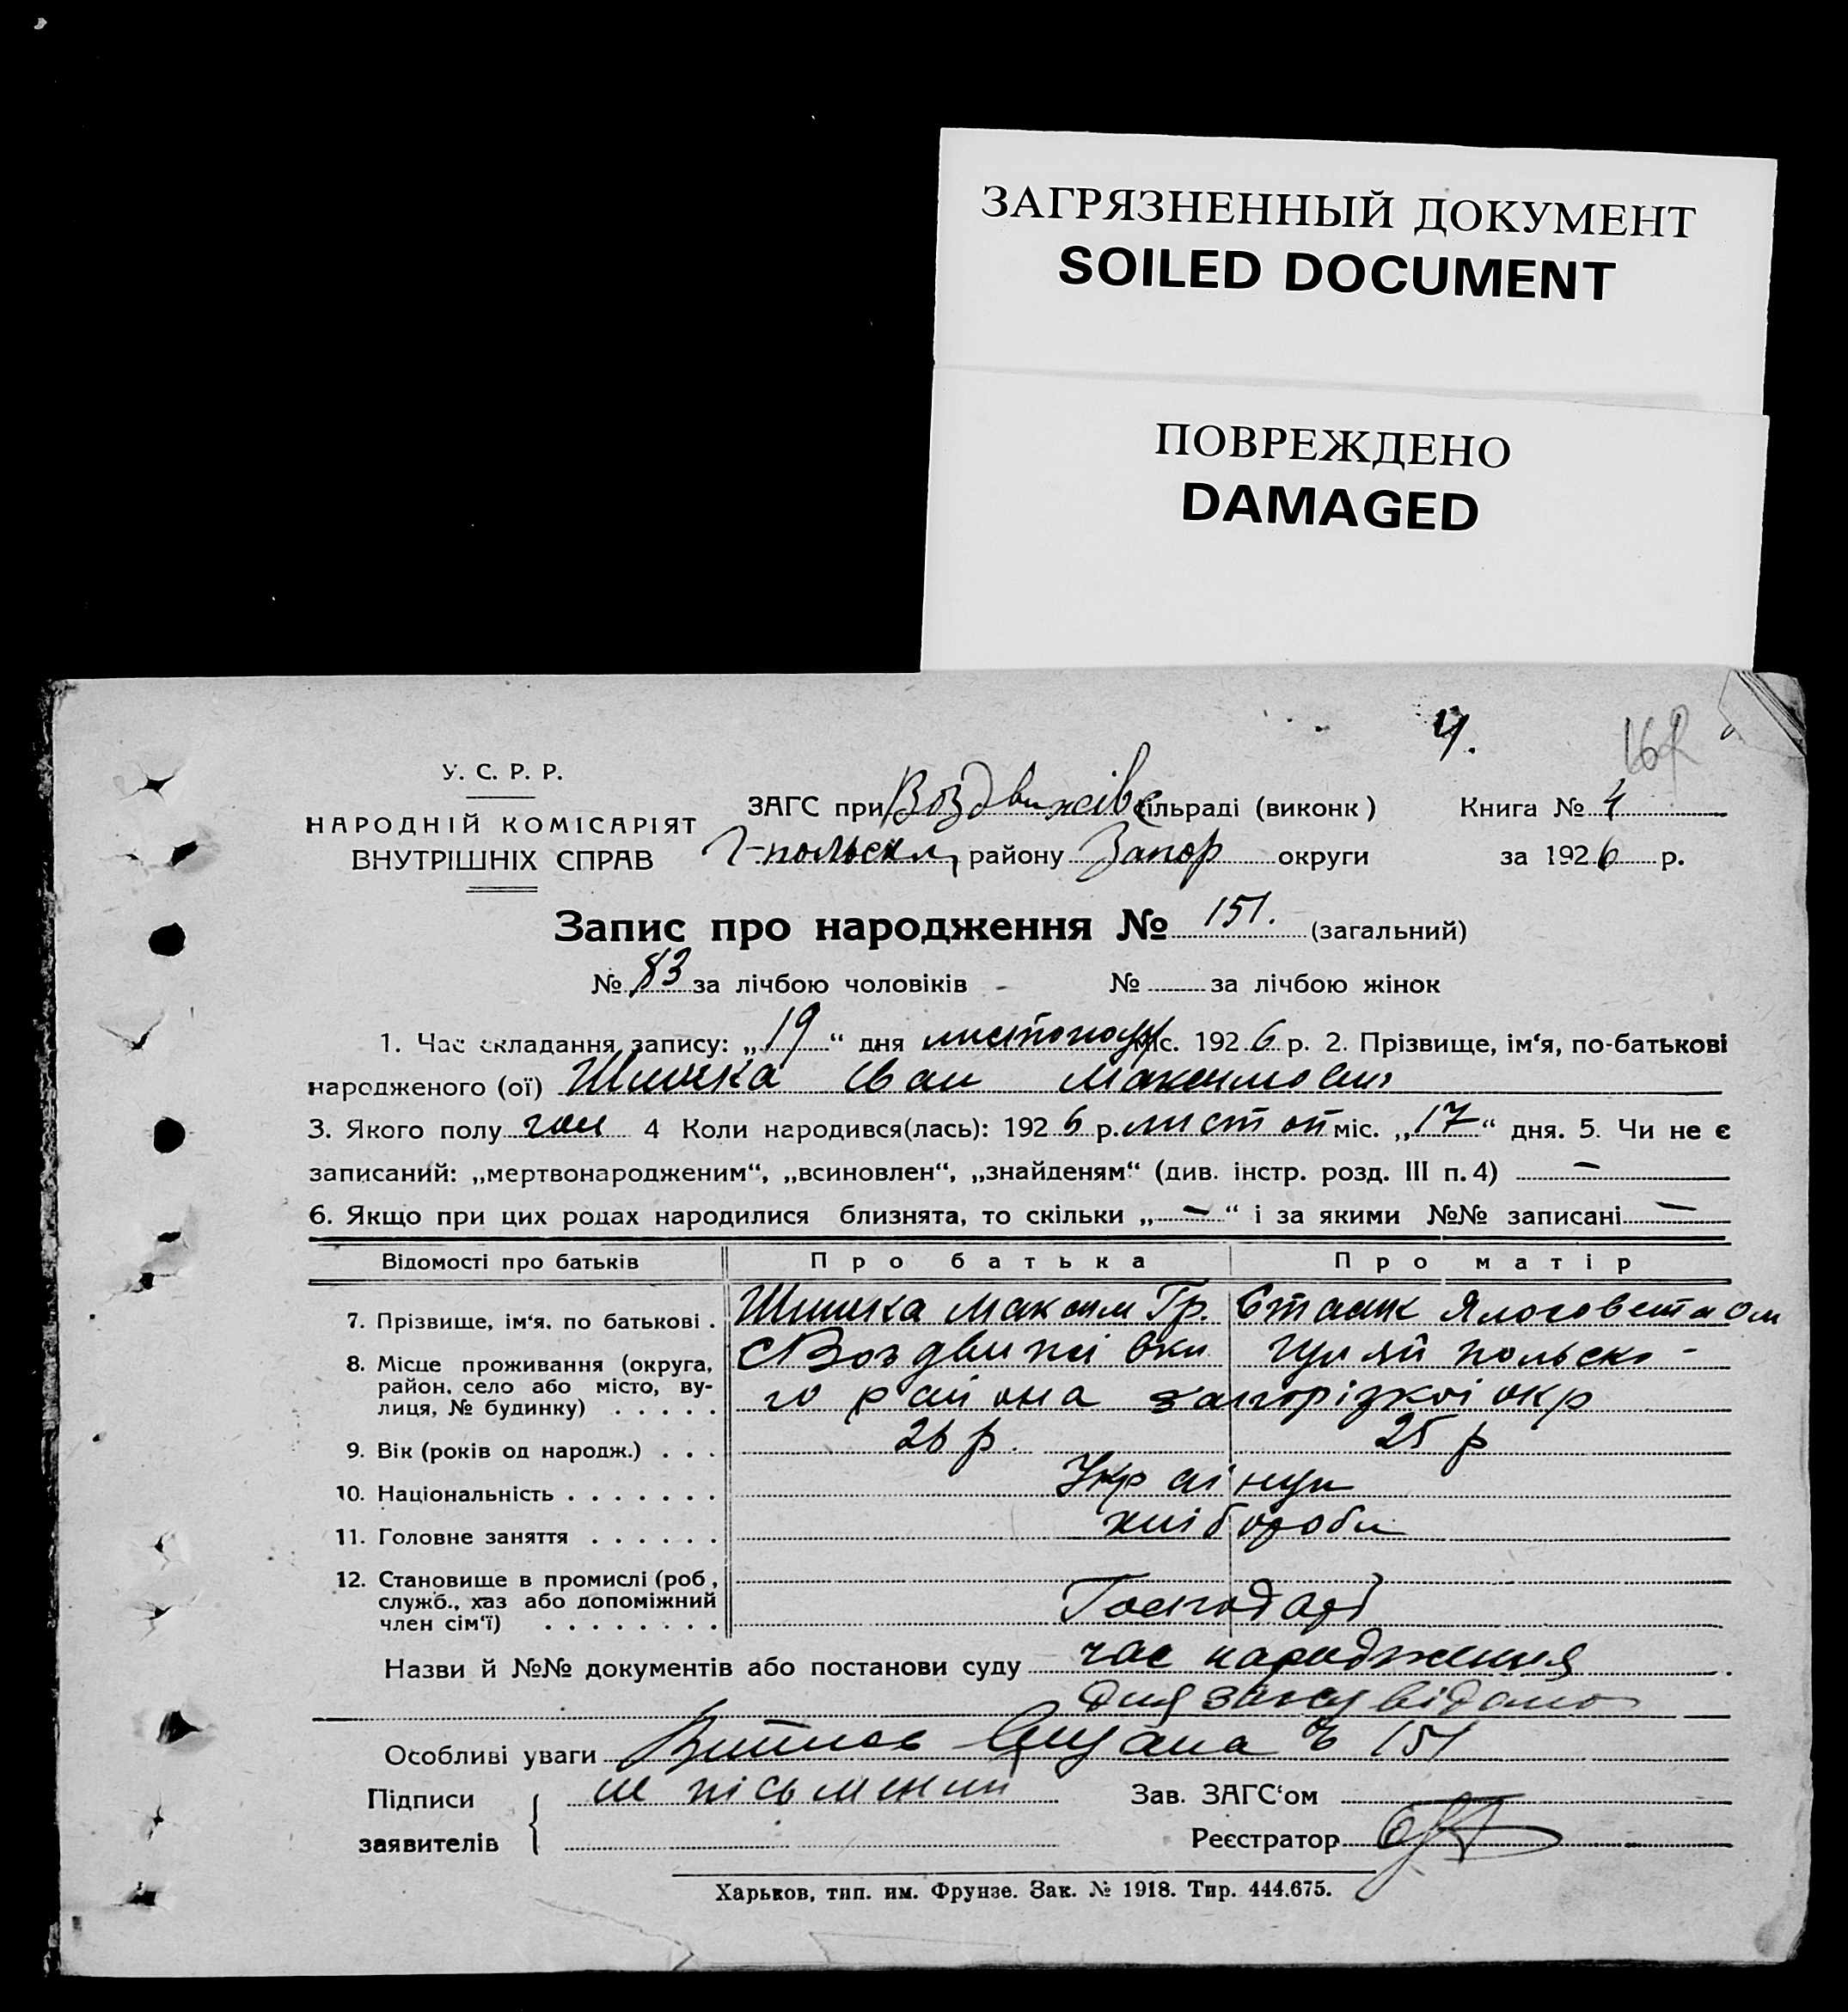 ЗАГРЯЗНЕННЫЙ ДОКУМЕНТ
SOILED DOCUMENT
ПОВРЕЖДЕНО
DAMAGED
У. С. Р. Р.
НАРОДНІЙ КОМІСАРІЯТ
ВНУТРІШНІХ СПРАВ
ЗАГС при Воздвижівс сільраді (виконк) Книга № 4
району Запор округи за 1926 р.
Запис про народження № 151. (загальний)
№ 83 за лічбою чоловіків - № за лічбою жінок
1. Час складання запису: „19“ дня листопаду міс. 1926 р. 2. Прізвище, ім‘я, по-батькові
народженого (ої) Шишка Иван Максимович
3. Якого полу чол 4 Коли народився(лась): 1926 р. листоп міс. „17“ дня. 5. Чи не є
записаний: „мертвонародженим“, „всиновлен“, „знайденям“ (див. інстр. розд. III п. 4) —
6. Якщо при цих родах народилися близнята, то скільки „—“ і за якими №№ записані —
Відомості про батьків Про батька Про матір
7. Прізвище, ім‘я, по батькові . Шишка Максим Гр.
8. Місце проживання (округа, район, село або місто, вулиця, № будинку) . . . . . с Воздвижівки Гуляйпольско-
го района запорізкої окр
9. Вік (років од народж.) . . . 26 р. 25 р
10. Національність . . . . . . . Українци
11. Головне заняття . . . . . . хлібороби
12. Становище в промислі (роб., служб., хаз або допоміжний член сім‘ї) . . . . . . . . Господарі
Назви й №№ документів або постанови суду час народження
для загсу відомо
Особливі уваги Витпис 151
Підписи заявителів не письменний Зав. ЗАГС‘ом
Реєстратор
Харьков, тип. им. Фрунзе. Зак. № 1918. Тир. 444.675.